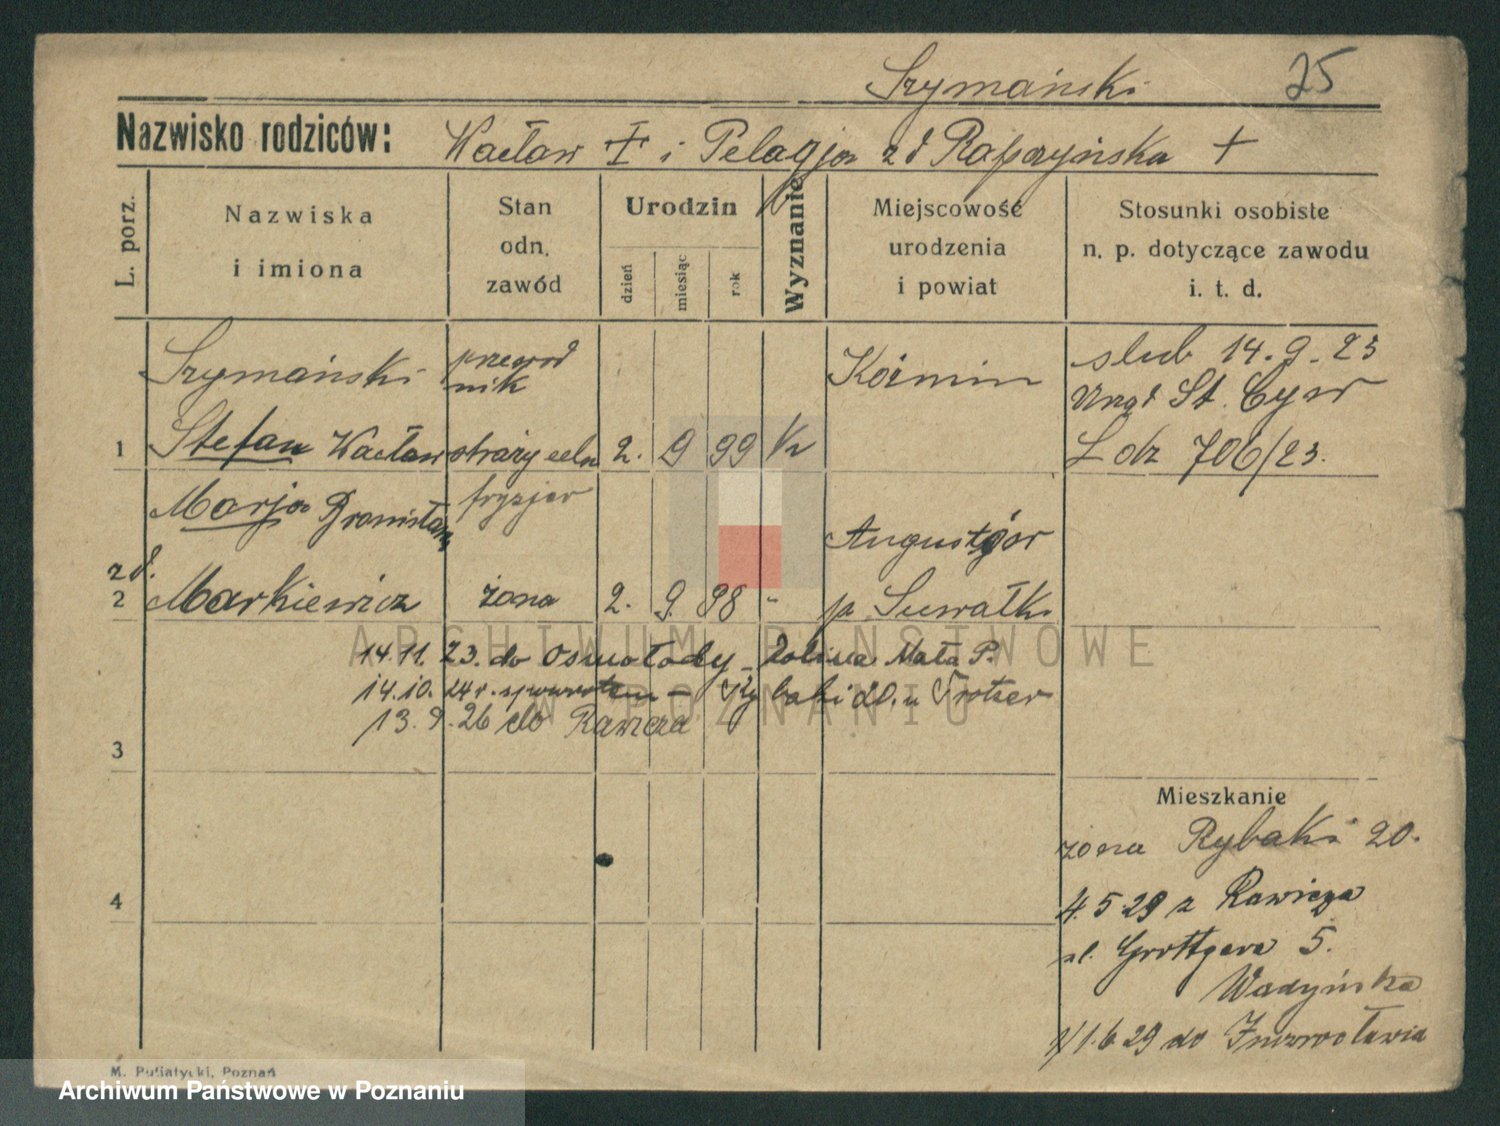 Szymański 25
Nazwisko rodziców: Wacław + i Pelagja z d Rapczyńska +
L. porz.
Nazwiska
i imiona
Stan
odn.
zawód
Urodzin
dzień
miesiąc
rok
Wyznanie
Miejscowość
urodzenia
i powiat
Stosunki osobiste
n. p. dotyczące zawodu
i. t. d.
Szymański przewod Koźmin slub 14.9.23
nik Urząd St. Cyw
1 Stefan Wacław straży celn 2. 9 99 K L dz 706/23.
Marja Bronisława fryzjer
Augustgór
zd.
2 Markiewicz żona 2. 9. 98 " p. Suwałki
14.11.23. do Osmołody Dolina Mała P.
14.10.24 r. spowrotem - Rybaki 20. u Trotzer
13.9.26 do Rawicza
3
Mieszkanie
żona Rybaki 20.
4.5 29 z Rawicza
4
ul. Grottgera 5.
1.6 29 do Inowrocławia
M. Putiatycki, Poznań
ARCHIWUM PAŃSTWOWE
W POZNANIU
Archiwum Państwowe w Poznaniu